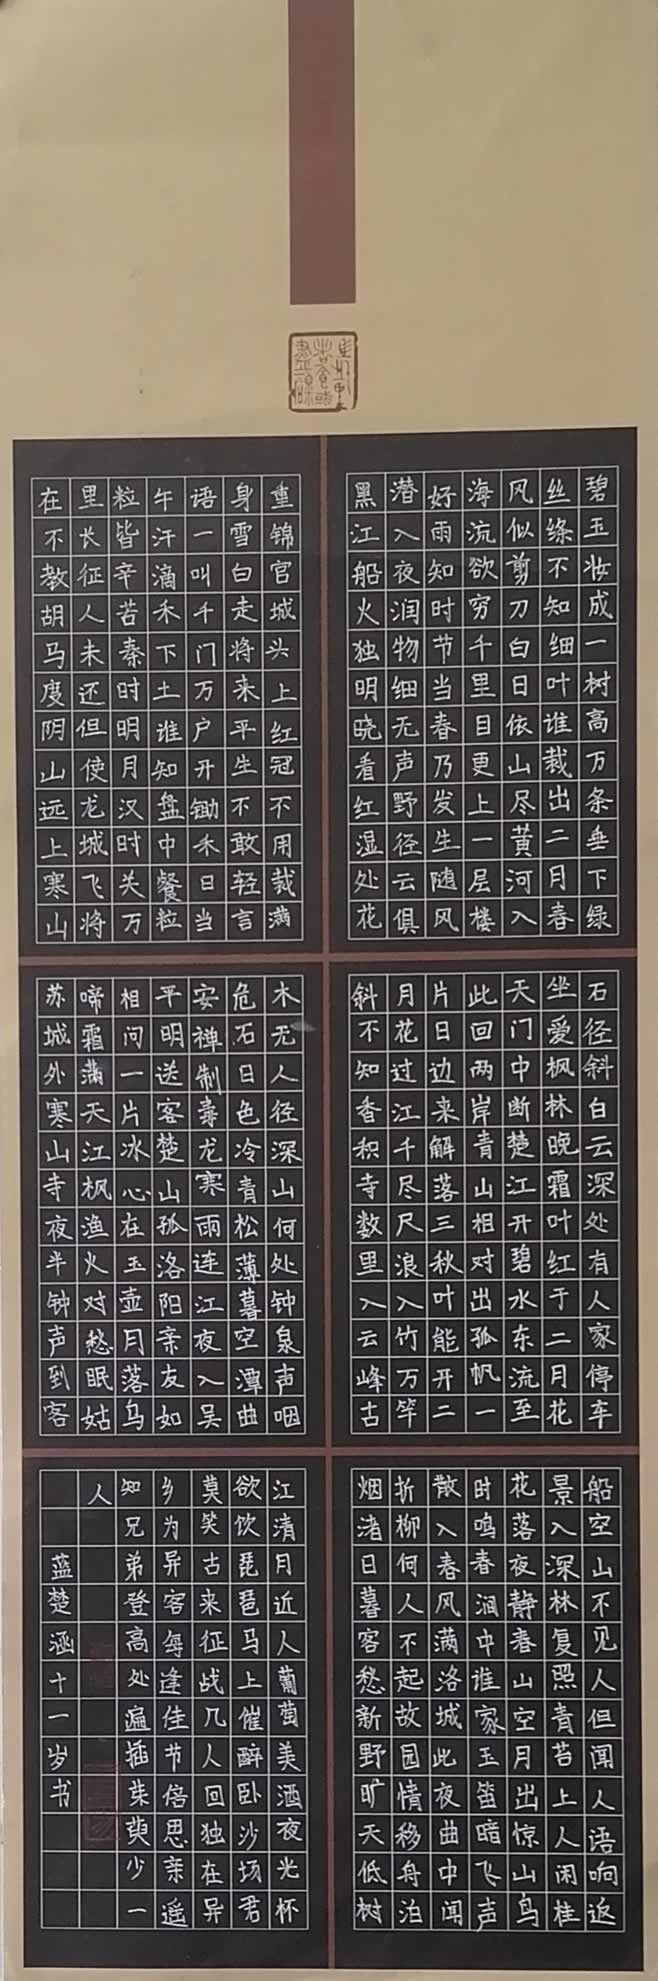 碧玉妆成一树高万条垂下绿
丝绦不知细叶谁裁出二月春
风似剪刀白日依山尽黄河入
海流欲穷千里目更上一层楼
好雨知时节当春乃发生随风
潜入夜润物细无声野径云俱
黑江船火独明晓看红湿处花
重锦官城头上红冠不用裁满
身雪白走将来平生不敢轻言
语一叫千门万户开锄禾日当
午汗滴禾下土谁知盘中餐粒
粒皆辛苦秦时明月汉时关万
里长征人未还但使龙城飞将
在不教胡马度阴山远上寒山
石径斜白云深处有人家停车
坐爱枫林晚霜叶红于二月花
天门中断楚江开碧水东流至
此回两岸青山相对出孤帆一
片日边来解落三秋叶能开二
月花过江千尽尺浪入竹万竿
斜不知香积寺数里入云峰古
木无人径深山何处钟泉声咽
危石日色冷青松薄暮空潭曲
安禅制毒龙寒雨连江夜入吴
平明送客楚山孤洛阳亲友如
相问一片冰心在玉壶月落乌
啼霜满天江枫渔火对愁眠姑
苏城外寒山寺夜半钟声到客
船空山不见人但闻人语响返
景入深林复照青苔上人闲桂
花落夜静春山空月出惊山鸟
时鸣春涧中谁家玉笛暗飞声
散入春风满洛城此夜曲中闻
折柳何人不起故园情移舟泊
烟渚日暮客愁新野旷天低树
江清月近人葡萄美酒夜光杯
欲饮琵琶马上催醉卧沙场君
莫笑古来征战几人回独在异
乡为异客每逢佳节倍思亲遥
知兄弟登高处遍插茱萸少一
人
蓝楚涵十一岁书